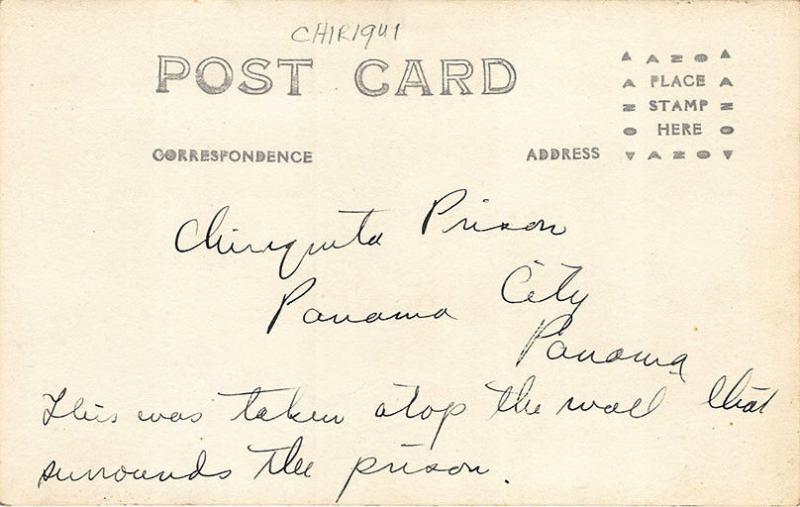 CHIRIQUI
POST CARD
▲ A Z O ▲
A PLACE A
Z STAMP Z
O HERE O
▼ A Z O ▼
CORRESPONDENCE
ADDRESS
Chiriquita Prison
Panama City
Panama
This was taken atop the wall that
surrounds the prison.